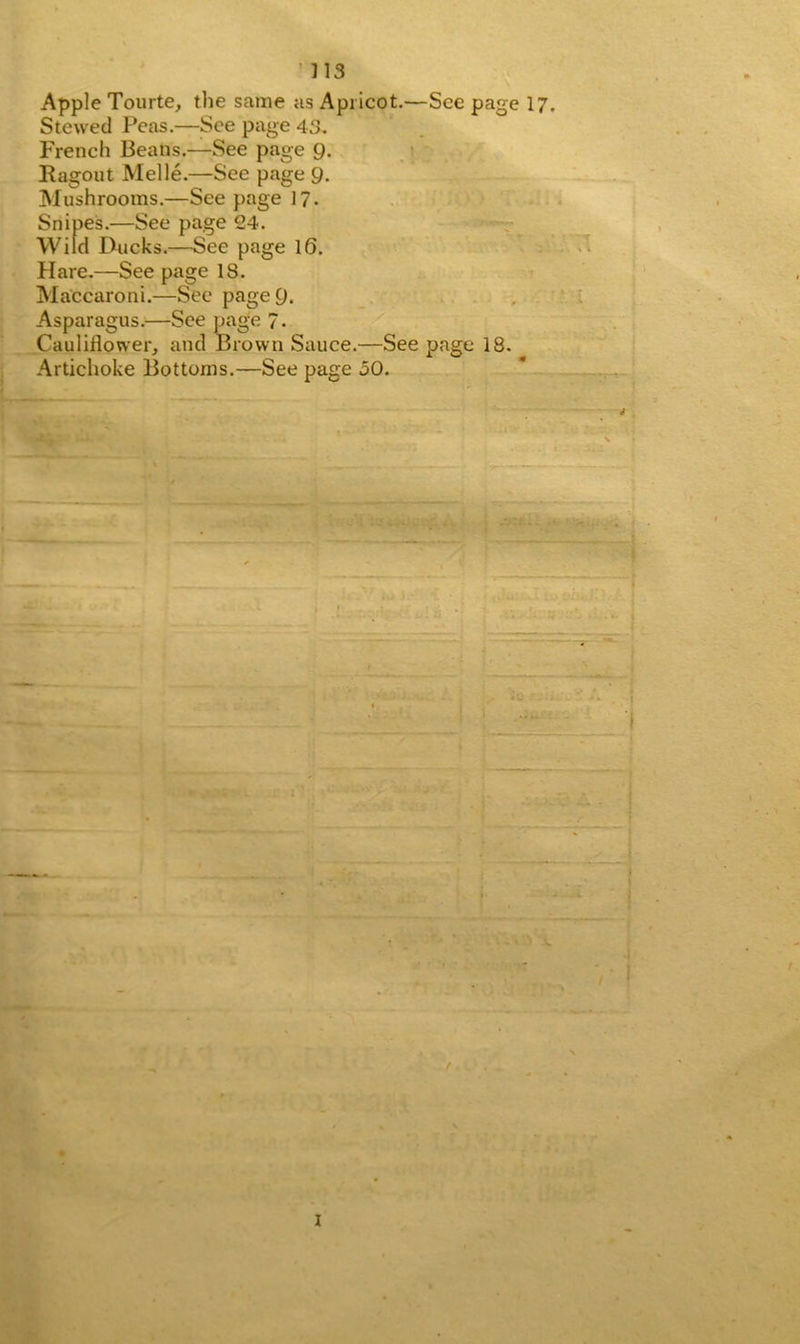 113
Apple Tourte, the same as Apricot.—See page 17.
Stewed Peas.—See page 43.
French Beans.—See page 9.
Ragout Mellé.—See page 9.
Mushrooms.—See page 17.
Snipes.—See page 24.
Wild Ducks.—See page 16.
Hare.—See page 18.
Maccaroni.—See page 9.
Asparagus.—See page 7.
Cauliflower, and Brown Sauce.—See page 18.
Artichoke Bottoms.—See page 50.
I